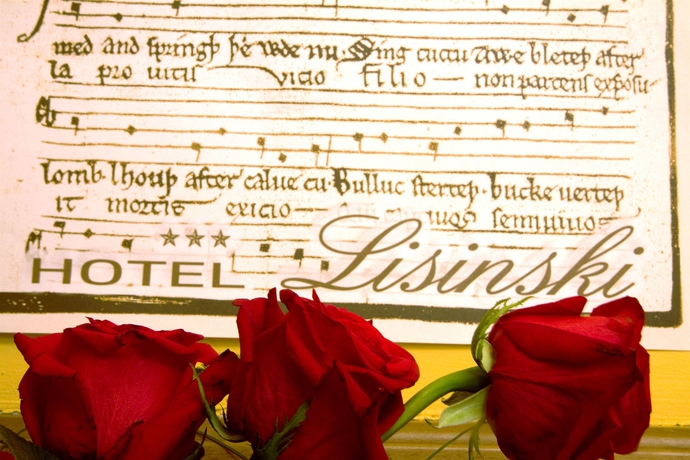 med and springþ þe wde nu. Sing cuccu Awe bleteþ after
la pro vitis vicio filio non parcens exposu-
lomb. lhouþ after calue cu. Bulluc sterteþ. bucke uerteþ
it mortis exicio semiuiuos
HOTEL Lisinski